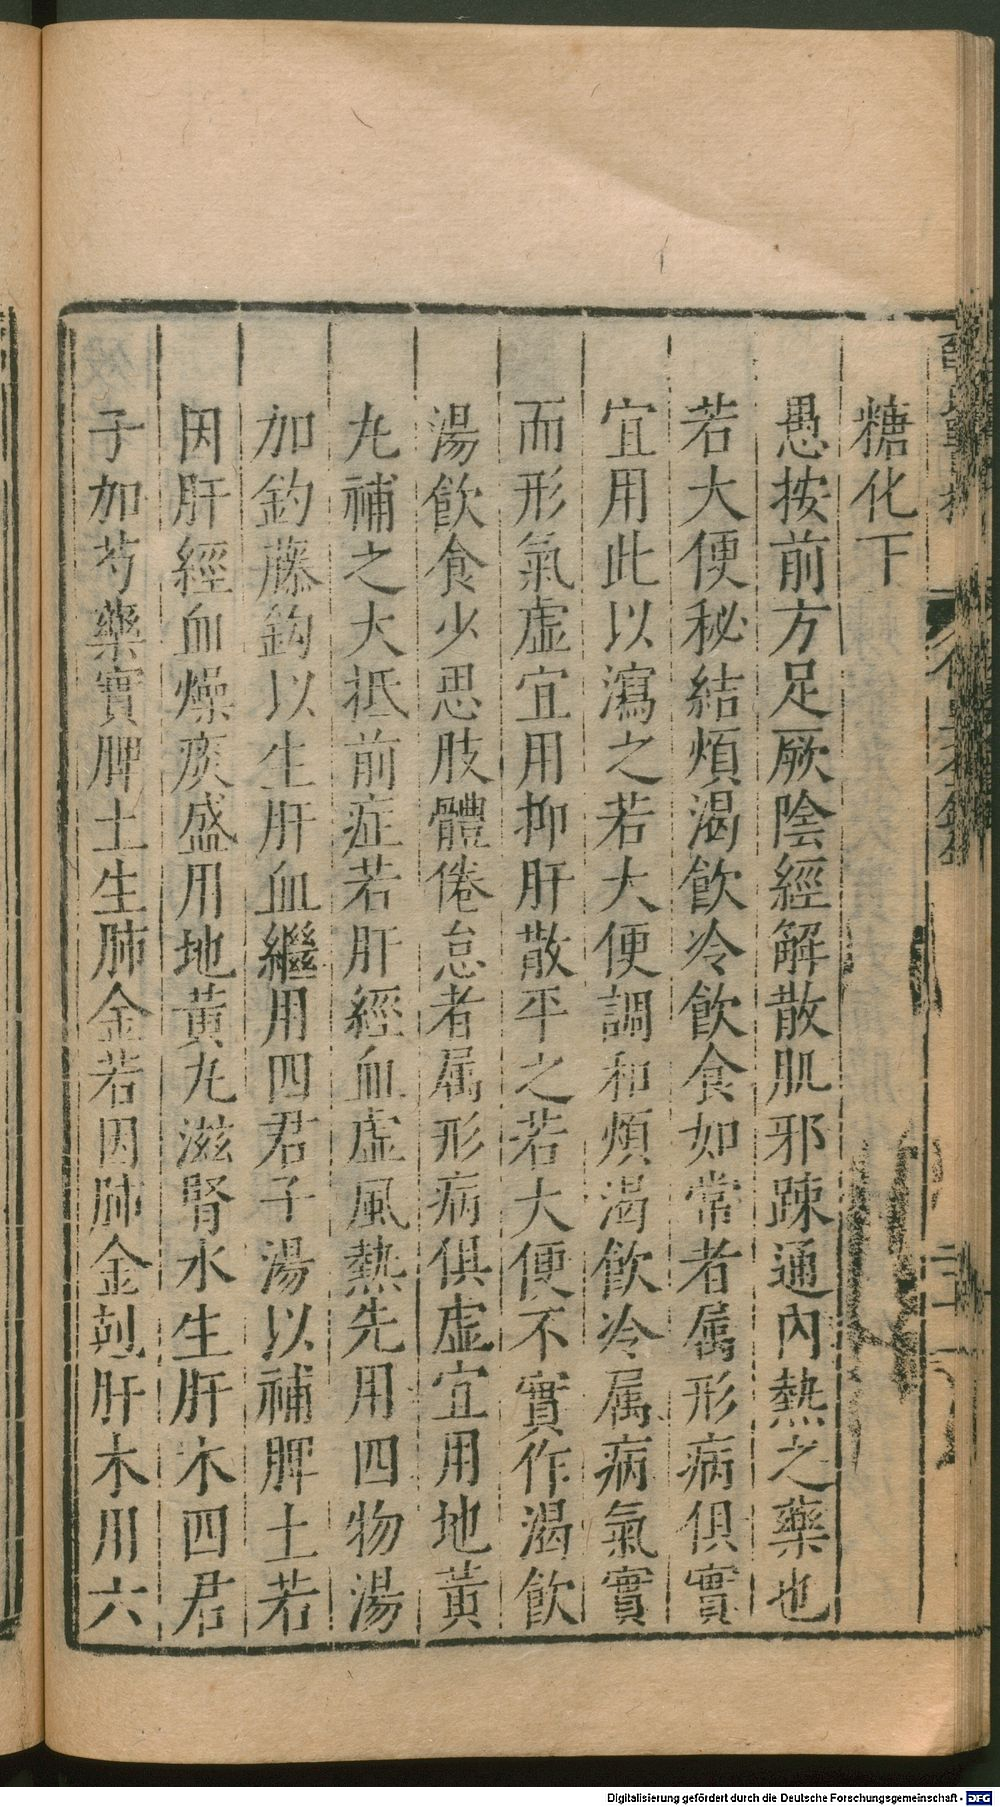 糖化下
愚按前方足厥陰經解散肌邪踈通內熱之藥也
若大便秘結煩渴飲冷飲食如常者属形病俱實
宜用此以瀉之若大便調和煩渴飲冷属病氣實
而形氣虛宜用抑肝散平之若大便不實作渴飲
湯飲食少思肢體倦怠者属形病俱虛宜用地黃
丸補之大抵前症若肝經血虛風熱先用四物湯
加釣藤鈎以生肝血繼用四君子湯以補脾土若
因肝經血燥痰盛用地黃丸滋腎水生肝木四君
子加芍藥實脾土生肺金若因肺金尅肝木用六
Digitalisierung gefördert durch die Deutsche Forschungsgemeinschaft - DFG